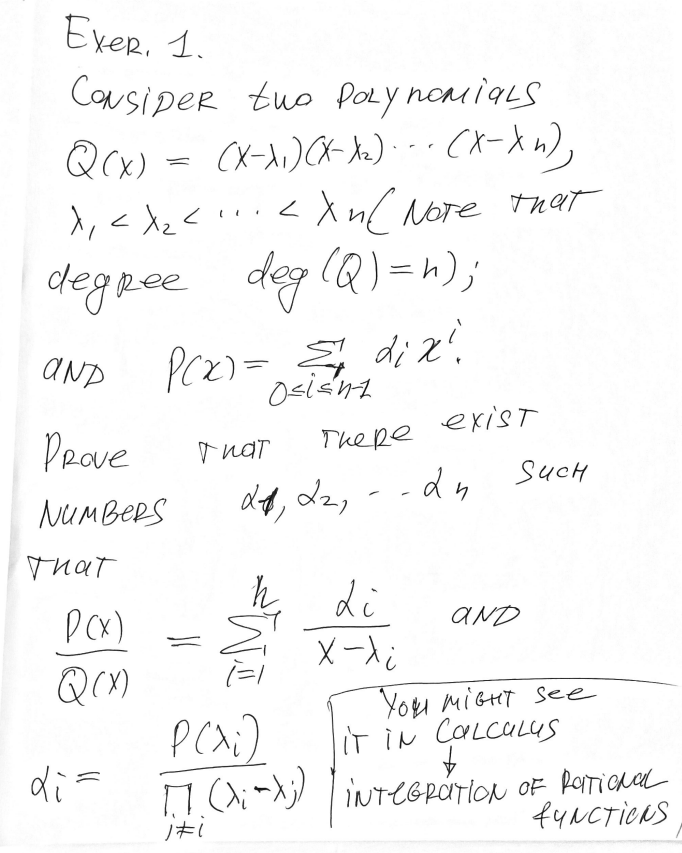 Exer. 1.
Consider two polynomials
Q(x) = (x-λ₁)(x-λ₂)··· (x-λn),
λ₁ < λ₂ < ··· < λn ( Note that
degree deg (Q) = n);
and P(x) = Σ αi xⁱ.
0≤i≤n-1
Prove that there exist
numbers α1, α2, -- αn such
that
P(x)/Q(x) = Σ_{i=1}^{n} αi/(x-λi) and
αi = P(λi)/∏_{j≠i} (λi-λj)
You might see
it in Calculus
↓
integration of rational
functions